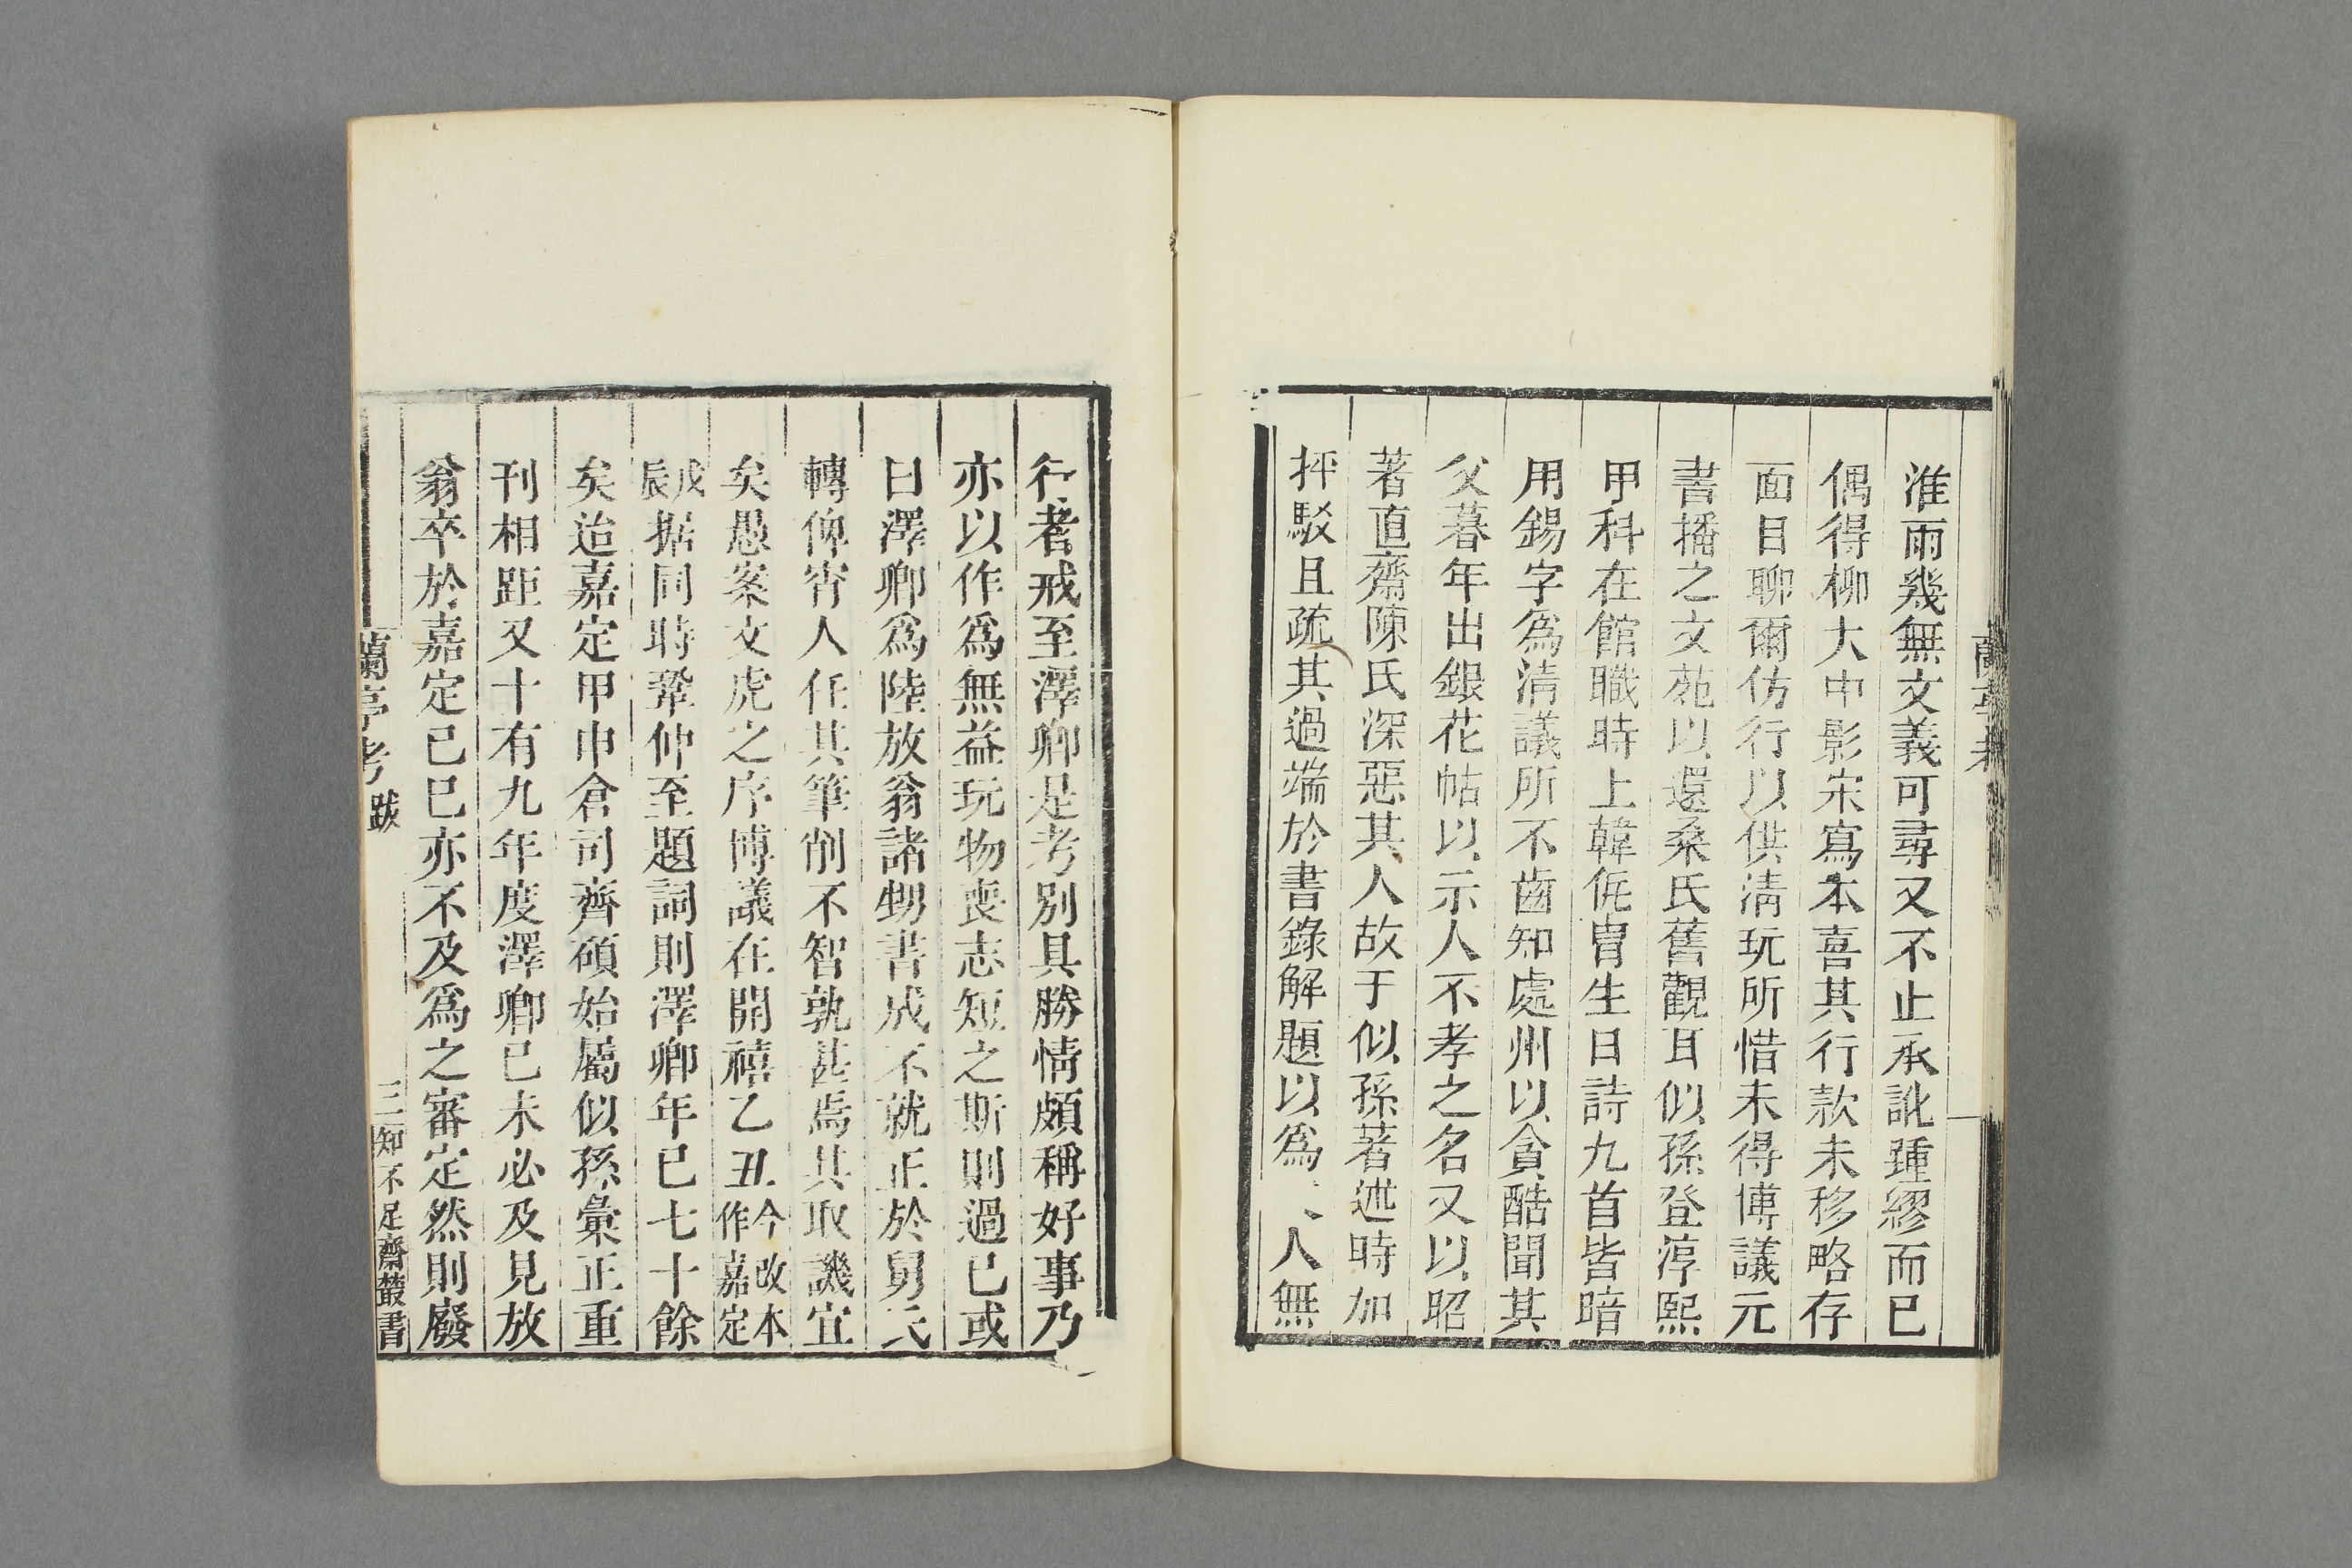 淮雨幾無文義可尋又不止承訛踵繆而已
偶得柳大中影宋寫本喜其行款未移略存
面目聊爾仿行以供清玩所惜未得博議元
書播之文苑以還桑氏舊觀耳似孫登淳熙
甲科在館職時上韓侂胄生日詩九首皆暗
用錫字爲清議所不齒知處州以貪酷聞其
父暮年出銀花帖以示人不孝之名又以昭
著直齋陳氏深惡其人故于似孫著述時加
抨駁且疏其過端於書錄解題以爲人無
行者戒至澤卿是考別具勝情頗稱好事乃
亦以作爲無益玩物喪志短之斯則過已或
曰澤卿爲陸放翁諸甥書成不就正於舅氏
轉俾宵人任其筆削不智孰甚焉其取譏宜
矣愚案文虎之序博議在開禧乙丑今改本作嘉定
戊辰据同時鞏仲至題詞則澤卿年已七十餘
矣迨嘉定甲申倉司齊碩始屬似孫彙正重
刊相距又十有九年度澤卿已未必及見放
翁卒於嘉定己巳亦不及爲之審定然則廢
蘭亭考 跋
三 知不足齋叢書